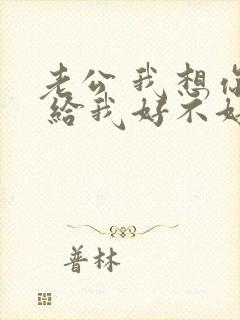 老公我想你
給我好不好
普林